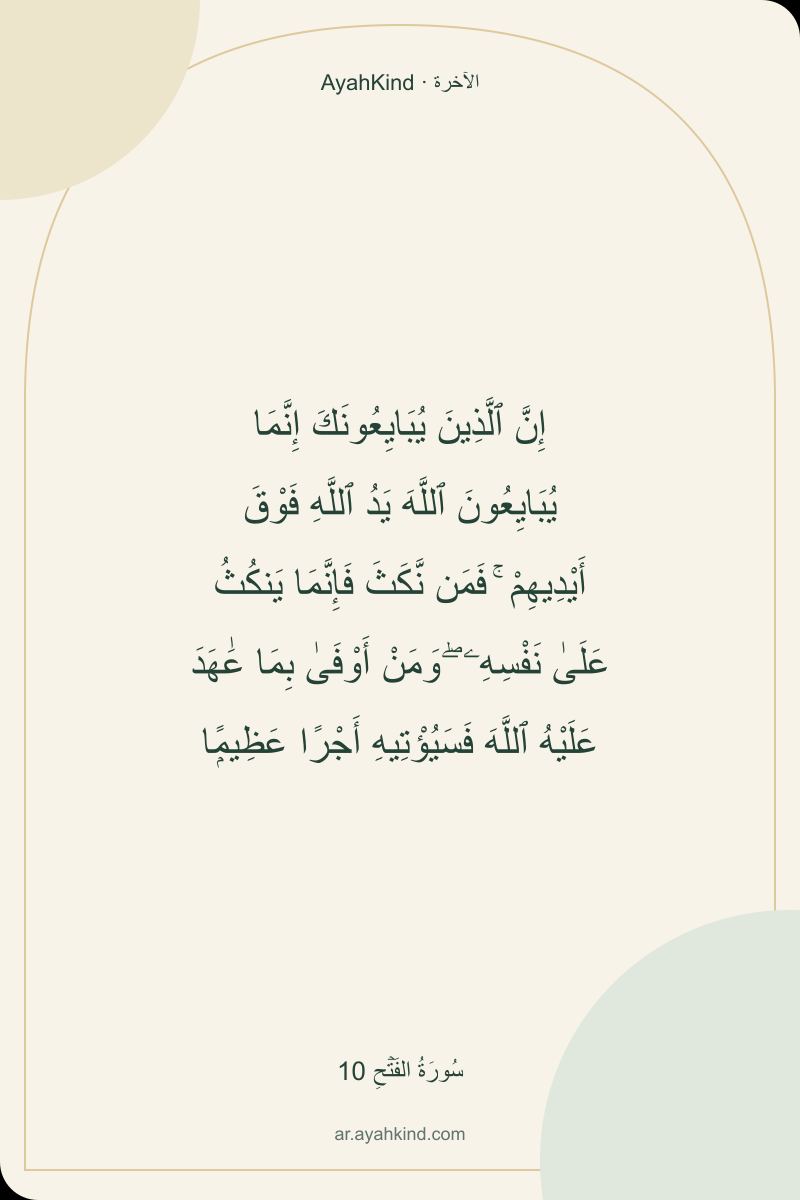 AyahKind · الآخرة
إِنَّ ٱلَّذِينَ يُبَايِعُونَكَ إِنَّمَا
يُبَايِعُونَ ٱللَّهَ يَدُ ٱللَّهِ فَوْقَ
أَيْدِيهِمْ ۚ فَمَن نَّكَثَ فَإِنَّمَا يَنكُثُ
عَلَىٰ نَفْسِهِۦ ۖ وَمَنْ أَوْفَىٰ بِمَا عَٰهَدَ
عَلَيْهُ ٱللَّهَ فَسَيُؤْتِيهِ أَجْرًا عَظِيمًۭا
سُورَةُ الفَتۡحِ 10
ar.ayahkind.com